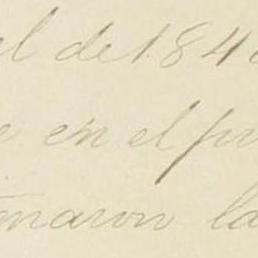 el de 184
en el pr
maron la